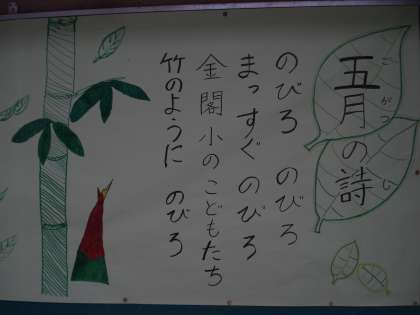 五月の詩
ごがつ
し
のびろ のびろ
まっすぐ のびろ
金閣小のこどもたち
竹のように のびろ